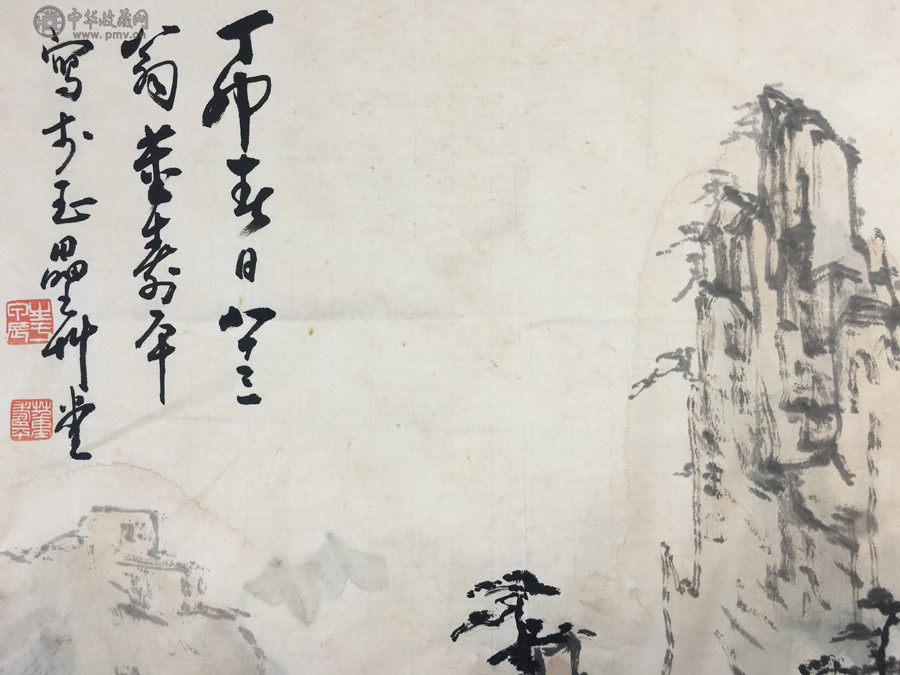 中华收藏网
www.pmv.cn
丁卯春日八十三
翁董壽平
寫於玉壘艸堂